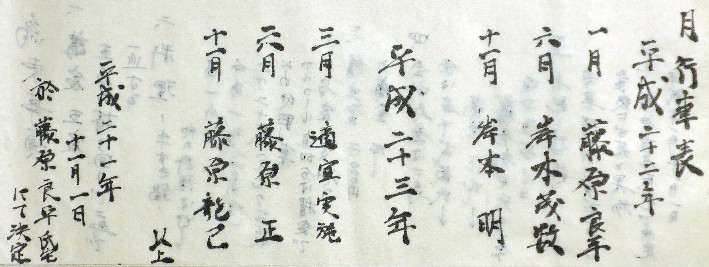 月行事表
平成二十二年
一月 藤原良平
六月 岸本茂数
十一月 岸本 明
平成二十三年
三月 適宜実施
六月 藤原 正
十一月 藤原龍已
以上
平成二十一年
十一月一日
於 藤原良平氏宅
にて決定